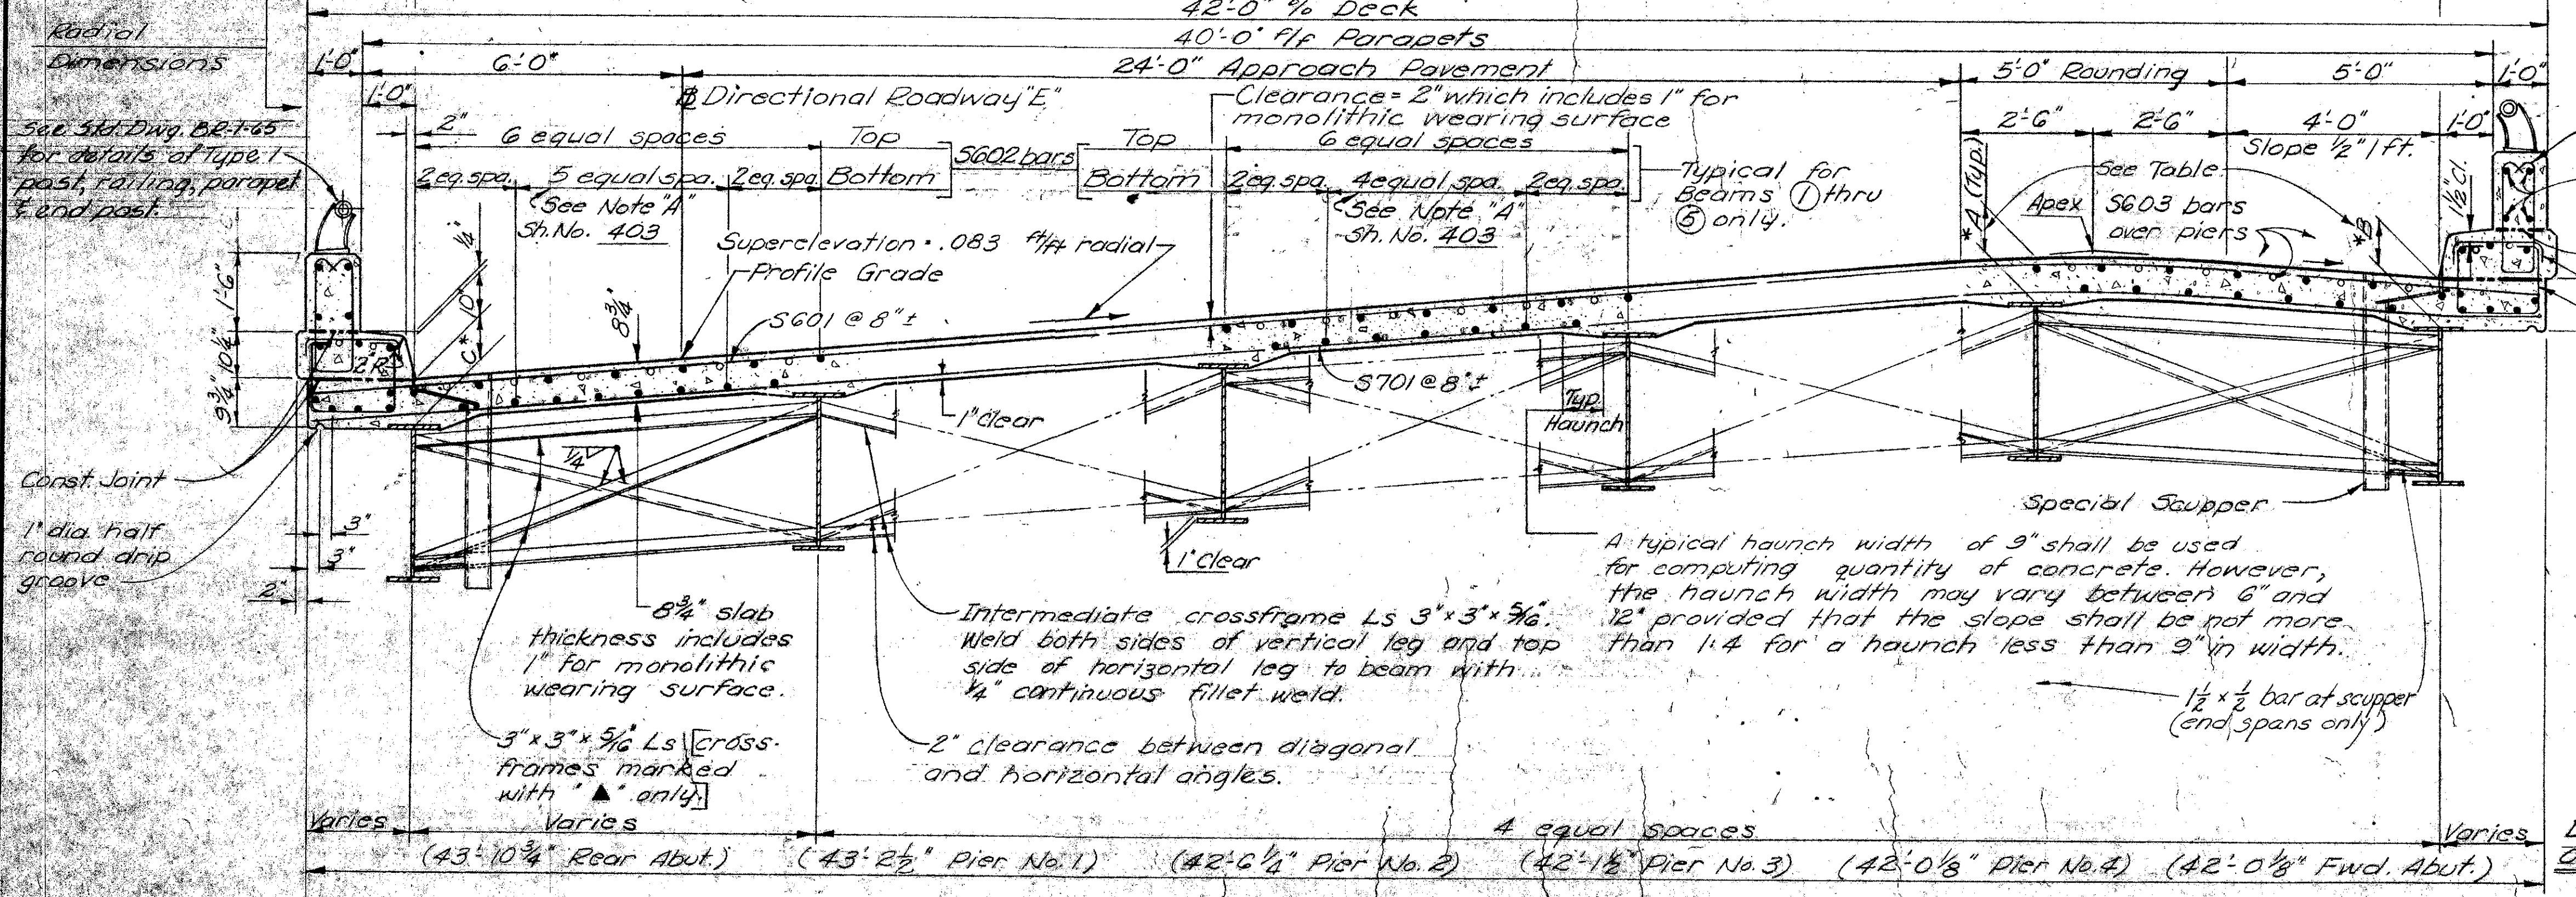 42'-0" % Deck
Radial
40'-0" f/f Parapets
Dimensions
1'-0"
6'-0"
24'-0" Approach Pavement
5'-0" Rounding
5'-0"
1'-0"
1'-0"
Directional Roadway "E"
Clearance = 2" which includes 1" for
monolithic wearing surface
2'-6"
2'-6"
4'-0"
1'-0"
Slope 1/2" / ft.
See Std. Dwg. BR-1-65
for details of Type 1
post, railing, parapet
& end post.
2"
6 equal spaces
Top
S602 bars
Top
6 equal spaces
2 eq. spa.
5 equal spa.
2 eq. spa.
Bottom
Bottom
2 eq. spa.
4 equal spa.
2 eq. spa.
Typical for
Beams ① thru
⑤ only.
See Note "A"
Sh. No. 403
See Note "A"
Sh. No. 403
*A (Typ.)
See Table
Apex
S603 bars
over piers
*B
1½" Cl.
Superelevation = .083 ft/ft radial
Profile Grade
1/4"
10"
C*
8 3/4"
S601 @ 8" ±
1'-6"
10 1/4"
9 3/4"
2" R.
1" Clear
S701 @ 8" ±
Typ.
Haunch
1/4
Const. Joint
1" dia. half
round drip
groove
3"
3"
2"
1" Clear
Special Scupper
8 3/4" slab
thickness includes
1" for monolithic
wearing surface.
Intermediate crossframe Ls 3" x 3" x 5/16".
Weld both sides of vertical leg and top
side of horizontal leg to beam with
1/4" continuous fillet weld.
A typical haunch width of 9" shall be used
for computing quantity of concrete. However,
the haunch width may vary between 6" and
12" provided that the slope shall be not more
than 1:4 for a haunch less than 9" in width.
1½ x ½ bar at scupper
(end spans only)
3" x 3" x 5/16" Ls [cross-
frames marked
with "▲" only.]
2" clearance between diagonal
and horizontal angles.
Varies
Varies
4 equal spaces
Varies
(43'-10 3/4" Rear Abut.)
(43'-2 1/2" Pier No. 1)
(42'-6 1/4" Pier No. 2)
(42'-1 1/2" Pier No. 3)
(42'-0 1/8" Pier No. 4)
(42'-0 1/8" Fwd. Abut.)